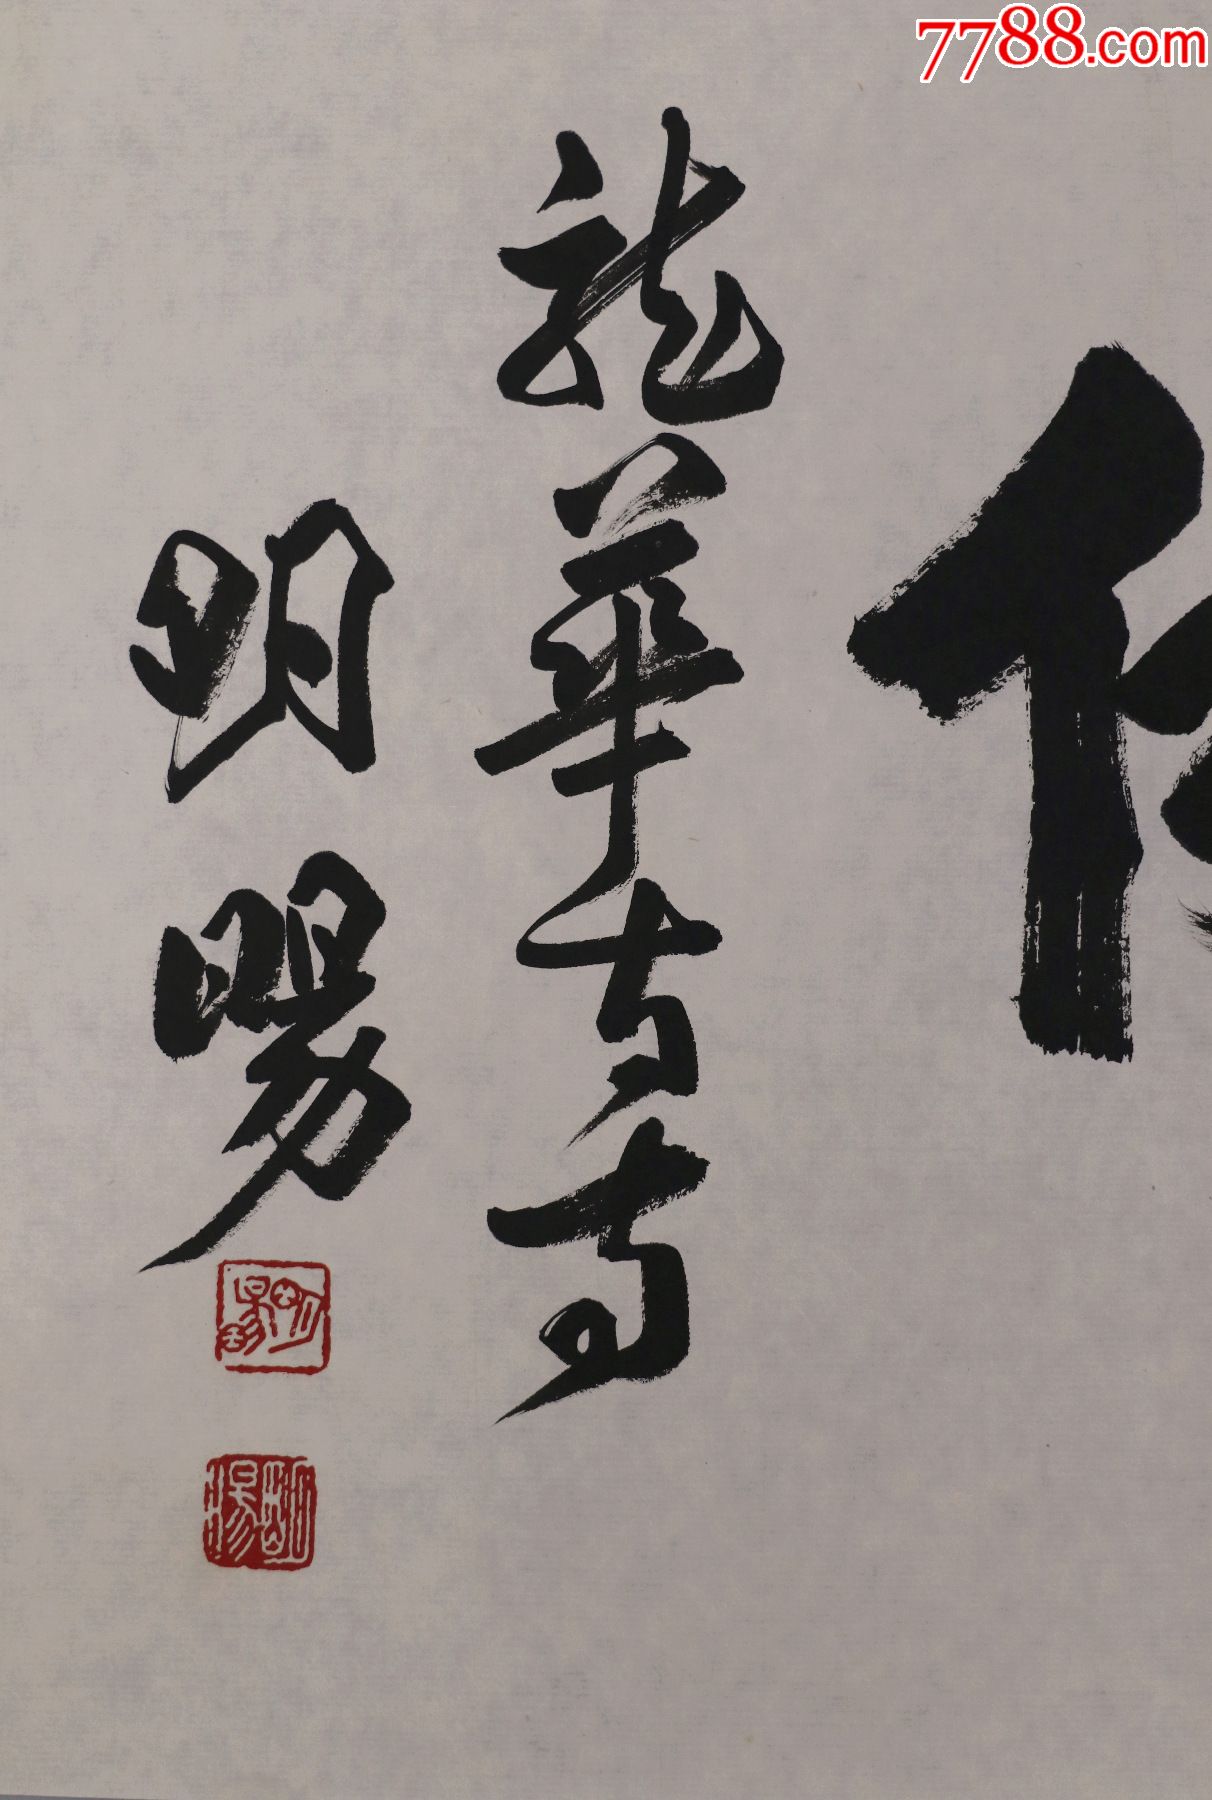 7788.com
龍華古寺
明暘
明暘